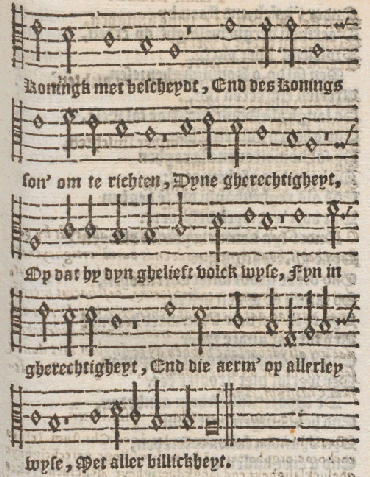 Koningk met bescheydt, End des konings
son' om te richten, Dyne gherechtigheyt,
Op dat hy dyn ghelieft volck wyse, Fyn in
gherechtigheyt, End die aerm' op allerley
wyse, Met aller billickheyt.